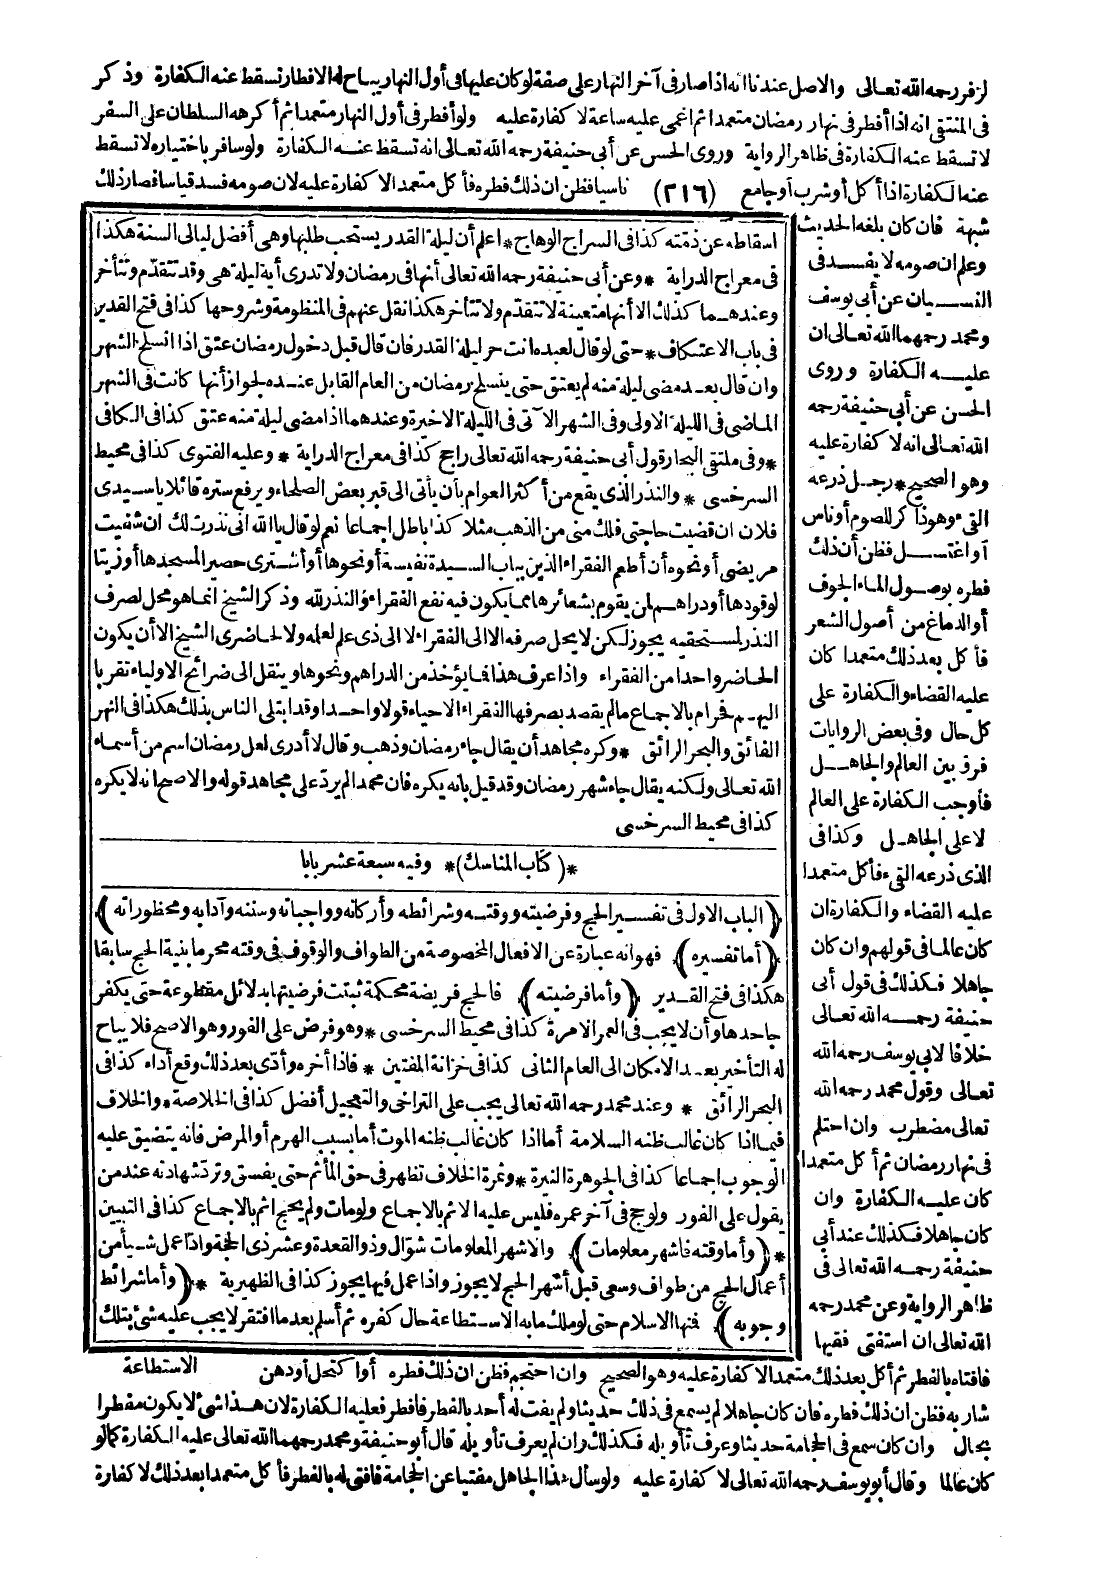 لزفر رحمه الله تعالى والاصل عندنا أنه اذا صار فى آخر النهار على صفة لو كان عليها فى أول النهار يباح له الافطار تسقط عنه الكفارة وذكر
فى المنتقى انه اذا أفطر فى نهار رمضان متعمدا ثم اغمى عليه ساعة لا كفارة عليه ولو أفطر فى أول النهار متعمدا ثم أكرهه السلطان على السفر
لا تسقط عنه الكفارة فى ظاهر الرواية وروى الحسن عن أبى حنيفة رحمه الله تعالى انه تسقط عنه الكفارة ولو سافر باختياره لا تسقط
عنه الكفارة اذا أكل أو شرب أو جامع (٢١٦) ناسيا فظن ان ذلك فطره فأكل متعمدا لا كفارة عليه لان صومه فسد قياسا فصار ذلك
شبهة فان كان بلغه الحديث
وعلم ان صومه لا يفسد فى
النسيان عن أبى يوسف
ومحمد رحمهما الله تعالى ان
عليه الكفارة وروى
الحسن عن أبى حنيفة رحمه
الله تعالى انه لا كفارة عليه
وهو الصحيح * رجل ذرعه
القىء وهو ذاكر للصوم أو ناس
أو اغتسل فظن أن ذلك
فطره بوصول الماء الجوف
أو الدماغ من أصول الشعر
فأكل بعد ذلك متعمدا كان
عليه القضاء والكفارة على
كل حال وفى بعض الروايات
فرق بين العالم والجاهل
فأوجب الكفارة على العالم
لا على الجاهل وكذا فى
الذى ذرعه القىء فأكل متعمدا
عليه القضاء والكفارة ان
كان عالما فى قولهم وان كان
جاهلا فكذلك فى قول أبى
حنيفة رحمه الله تعالى
خلافا لابى يوسف رحمه الله
تعالى وقول محمد رحمه الله
تعالى مضطرب وان احتلم
فى نهار رمضان ثم أكل متعمدا
كان عليه الكفارة وان
كان جاهلا فكذلك عند أبى
حنيفة رحمه الله تعالى فى
ظاهر الرواية وعن محمد رحمه
الله تعالى ان استفتى فقيها
فافتاه بالفطر ثم أكل بعد ذلك متعمدا لا كفارة عليه وهو الصحيح وان احتجم فظن ان ذلك فطره أو اكتحل أو دهن
شاربه فظن ان ذلك فطره فان كان جاهلا لم يسمع فى ذلك حديثا ولم يفت له أحد بالفطر فافطر فعليه الكفارة لان هذا شىء لا يكون مفطرا
بحال وان كان سمع فى الحجامة حديثا وعرف تأويله فكذلك وان لم يعرف تأويله قال أبو حنيفة ومحمد رحمهما الله تعالى عليه الكفارة كما لو
كان عالما وقال أبو يوسف رحمه الله تعالى لا كفارة عليه ولو سأل هذا الجاهل مفتيا عن الحجامة فافتى له بالفطر فأكل متعمدا بعد ذلك لا كفارة
اسقاطه عن ذمته كذا فى السراج الوهاج * اعلم أن ليلة القدر يستحب طلبها وهى أفضل ليالى السنة هكذا
فى معراج الدراية * وعن أبى حنيفة رحمه الله تعالى أنها فى رمضان ولا تدرى أية ليلة هى وقد تتقدّم وتتأخر
وعندهما كذلك الا أنها متعينة لا تتقدّم ولا تتأخر هكذا نقل عنهم فى المنظومة وشروحها كذا فى فتح القدير
فى باب الاعتكاف * حتى لو قال لعبده انت حر ليلة القدر فان قال قبل دخول رمضان عتق اذا انسلخ الشهر
وان قال بعد مضى ليلة منه لم يعتق حتى ينسلخ رمضان من العام القابل عنده لجواز أنها كانت فى الشهر
الماضى فى الليلة الاولى وفى الشهر الآتى فى الليلة الاخيرة وعندهما اذا مضى ليلة منه عتق كذا فى الكافى
* وفى ملتقى البحار قول أبى حنيفة رحمه الله تعالى راجح كذا فى معراج الدراية * وعليه الفتوى كذا فى محيط
السرخسى * والنذر الذى يقع من أكثر العوام بأن يأتى الى قبر بعض الصلحاء ويرفع ستره قائلا يا سيدى
فلان ان قضيت حاجتى فلك منى من الذهب مثلا كذا باطل اجماعا نعم لو قال يا الله انى نذرت لك ان شفيت
مريضى أو نحوه أن أطعم الفقراء الذين بباب السيدة نفيسة أو نحوها أو أشترى حصير المسجدها أو زيتا
لوقودها أو دراهم لمن يقوم بشعائرها مما يكون فيه نفع الفقراء والنذر لله وذكر الشيخ انما هو محل لصرف
النذر لمستحقيه يجوز لكن لا يحل صرفه الا الى الفقراء لا الى ذى علم لعلمه ولا لحاضرى الشيخ الا أن يكون
الحاضر واحدا من الفقراء واذا عرف هذا فما يؤخذ من الدراهم ونحوها وينقل الى ضرائح الاولياء تقربا
اليهم فحرام بالاجماع ما لم يقصد بصرفها الفقراء الاحياء قولا واحدا وقد ابتلى الناس بذلك هكذا فى النهر
الفائق والبحر الرائق * وكره مجاهد أن يقال جاء رمضان وذهب وقال لا أدرى لعل رمضان اسم من أسماء
الله تعالى ولكنه يقال جاء شهر رمضان وقد قيل بانه يكره فان محمدا لم يردّ على مجاهد قوله والاصح انه لا يكره
كذا فى محيط السرخسى
*(كتاب المناسك)* وفيه سبعة عشر بابا
(الباب الاول فى تفسير الحج وفرضيته ووقته وشرائطه وأركانه وواجباته وسننه وآدابه ومحظوراته)
(أما تفسيره) فهو انه عبارة عن الافعال المخصوصة من الطواف والوقوف فى وقته محرما بنية الحج سابقا
هكذا فى فتح القدير (وأما فرضيته) فالحج فريضة محكمة ثبتت فرضيتها بدلائل مقطوعة حتى يكفر
جاحدها وأن لا يجب فى العمر الا مرة كذا فى محيط السرخسى * وهو فرض على الفور وهو الاصح فلا يباح
له التأخير بعد الامكان الى العام الثانى كذا فى خزانة المفتين * فاذا أخره وأدّى بعد ذلك وقع أداء كذا فى
البحر الرائق * وعند محمد رحمه الله تعالى يجب على التراخى والتعجيل أفضل كذا فى الخلاصة * والخلاف
فيما اذا كان غالب ظنه السلامة أما اذا كان غالب ظنه الموت أما بسبب الهرم أو المرض فانه يتضيق عليه
الوجوب اجماعا كذا فى الجوهرة النيرة * وثمرة الخلاف تظهر فى حق المأثم حتى يفسق وتردّ شهادته عند من
يقول على الفور ولو حج فى آخر عمره فليس عليه الاثم بالاجماع ولو مات ولم يحج اثم بالاجماع كذا فى التبيين
* (وأما وقته فاشهر معلومات) والاشهر المعلومات شوّال وذو القعدة وعشر ذى الحجة واذا عمل شيأ من
أعمال الحج من طواف وسعى قبل أشهر الحج لا يجوز واذا عمل فيها يجوز كذا فى الظهيرية * (وأما شرائط
وجوبه) فمنها الاسلام حتى لو ملك ما به الاستطاعة حال كفره ثم أسلم بعد ما افتقر لا يجب عليه شىء بتلك
الاستطاعة